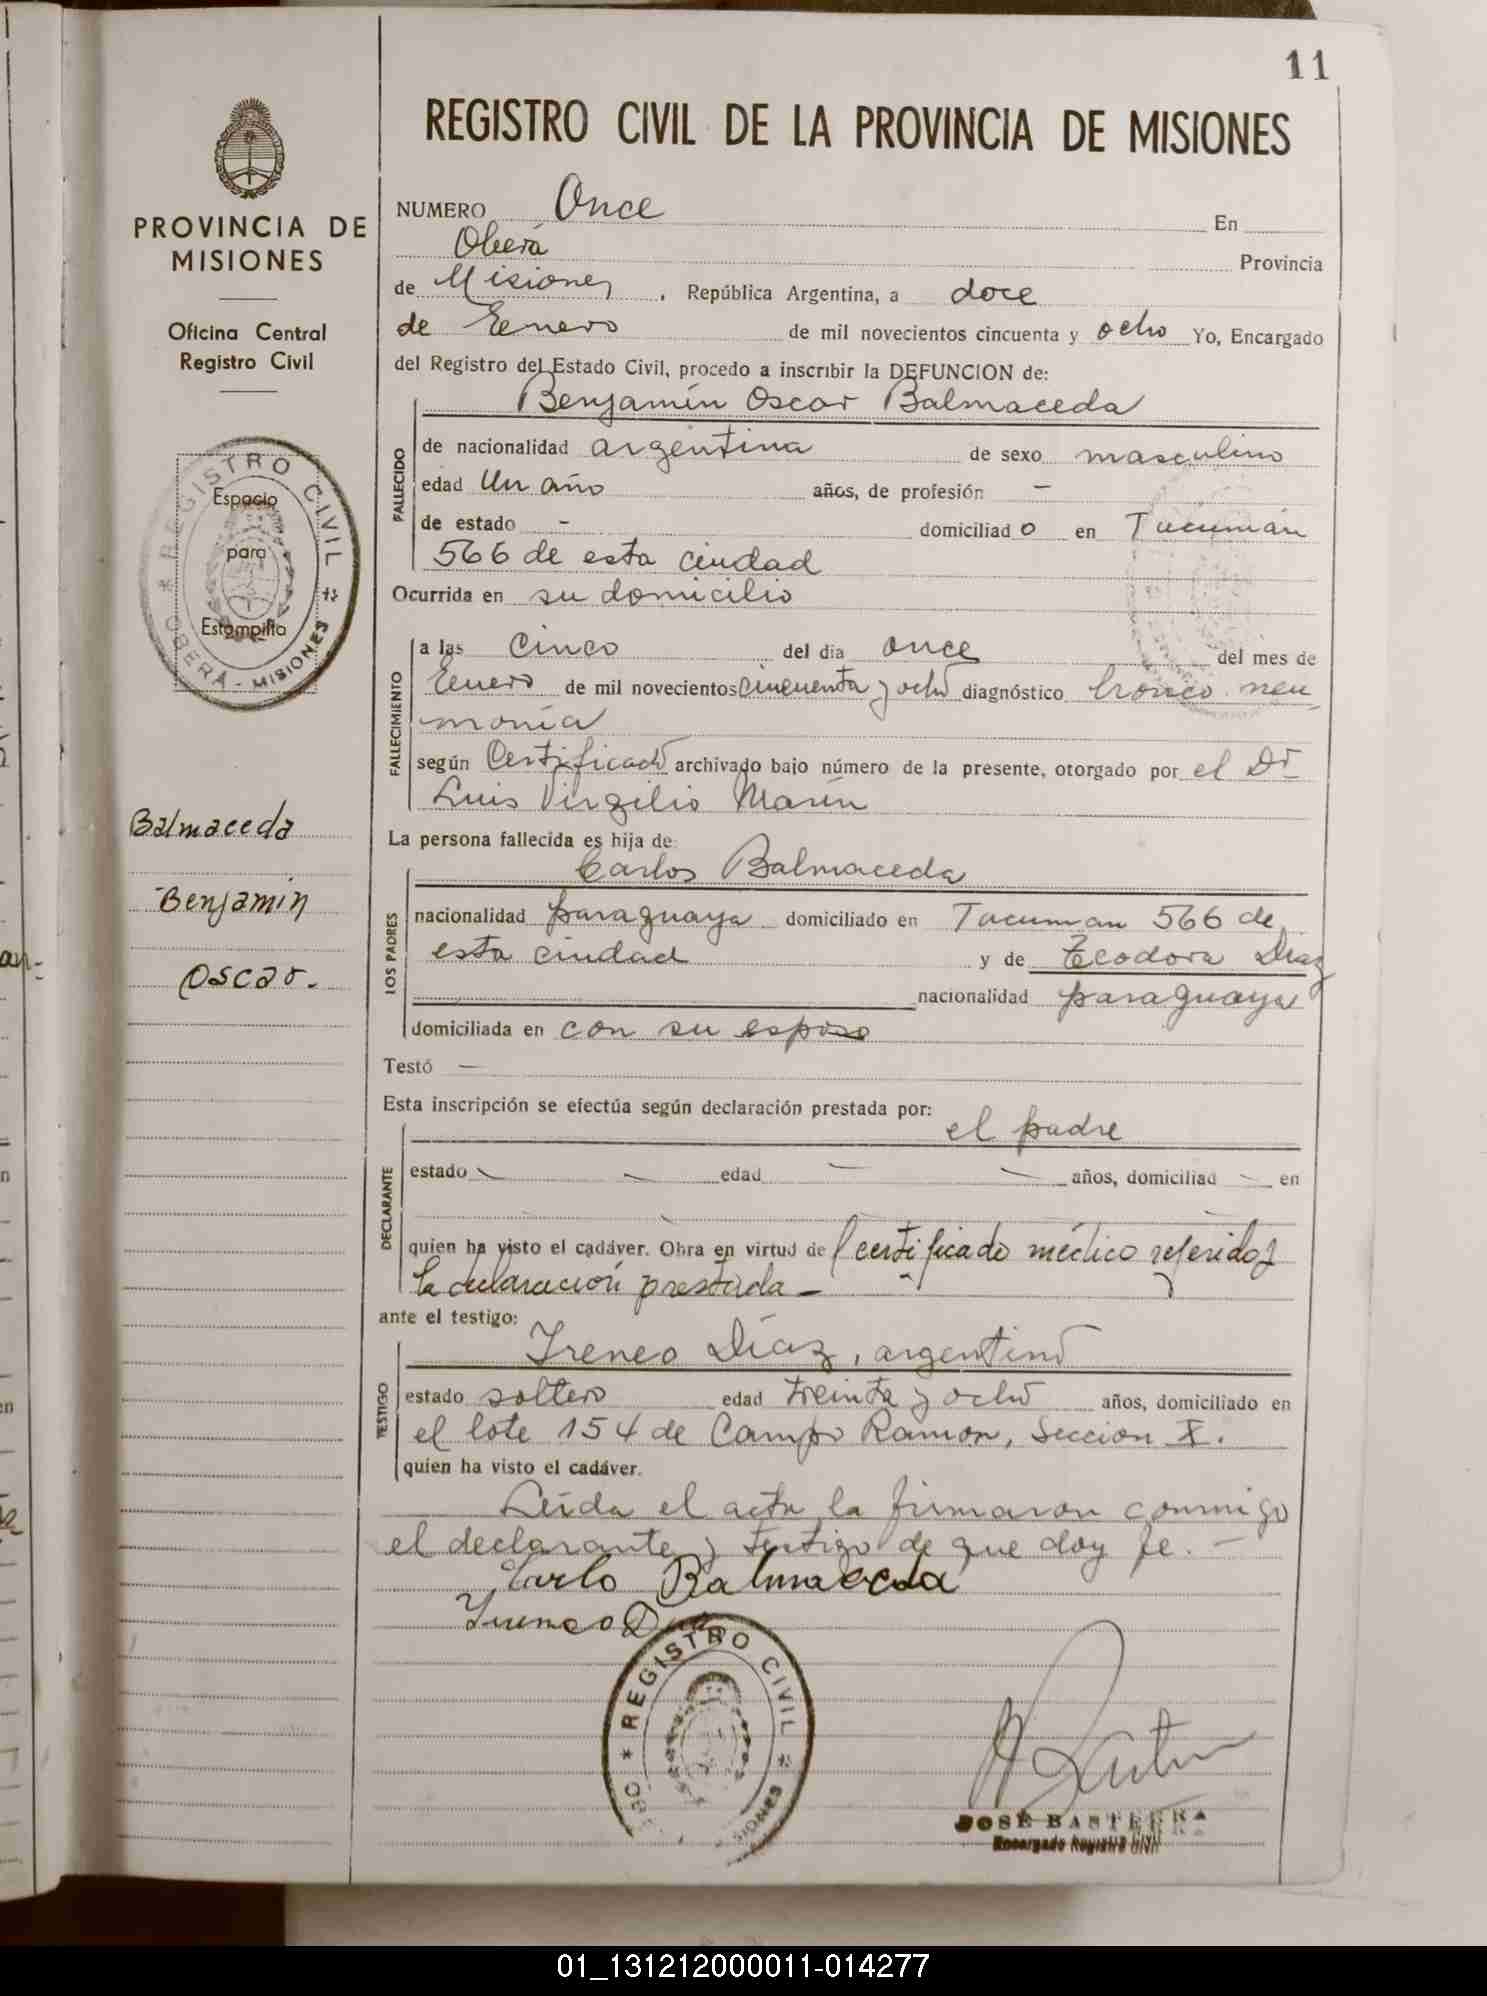 11
REGISTRO CIVIL DE LA PROVINCIA DE MISIONES
PROVINCIA DE
MISIONES
Oficina Central
Registro Civil
REGISTRO CIVIL
OBERÁ - MISIONES
Espacio
para
Estampilla
Balmaceda
Benjamin
Oscar.
NUMERO Once En
Oberá Provincia
de Misiones, República Argentina, a doce
de Eenero de mil novecientos cincuenta y ocho Yo, Encargado
del Registro del Estado Civil, procedo a inscribir la DEFUNCION de:
Benjamín Oscar Balmaceda
FALLECIDO
de nacionalidad argentina de sexo masculino
edad Un año años, de profesión —
de estado - domiciliado en Tucumán
566 de esta ciudad
Ocurrida en su domicilio
FALLECIMIENTO
a las cinco del dia once del mes de
Eenero de mil novecientos cincuenta y ocho diagnóstico bronco neu
monía
según Certificado archivado bajo número de la presente, otorgado por el Dr
Luis Virgilio Marín
La persona fallecida es hija de:
Carlos Balmaceda
LOS PADRES
nacionalidad paraguaya domiciliado en Tucuman 566 de
esta ciudad y de Teodora Diaz
nacionalidad paraguaya
domiciliada en con su esposo
Testó —
Esta inscripción se efectúa según declaración prestada por:
el padre
DECLARANTE
estado — edad — años, domiciliad — en
quien ha visto el cadáver. Obra en virtud de certificado médico referido y
la declaración prestada -
ante el testigo:
Ireneo Díaz, argentino
TESTIGO
estado soltero edad treinta y ocho años, domiciliado en
el lote 154 de Campo Ramon, Seccion X.
quien ha visto el cadáver.
Leída el acta la firmaron conmigo
el declarante y testigo de que doy fe. —
Carlo Balmaceda
Ireneo Diaz
REGISTRO CIVIL
JOSÉ BASTERRA
Encargado Registro Civil
01_131212000011-014277